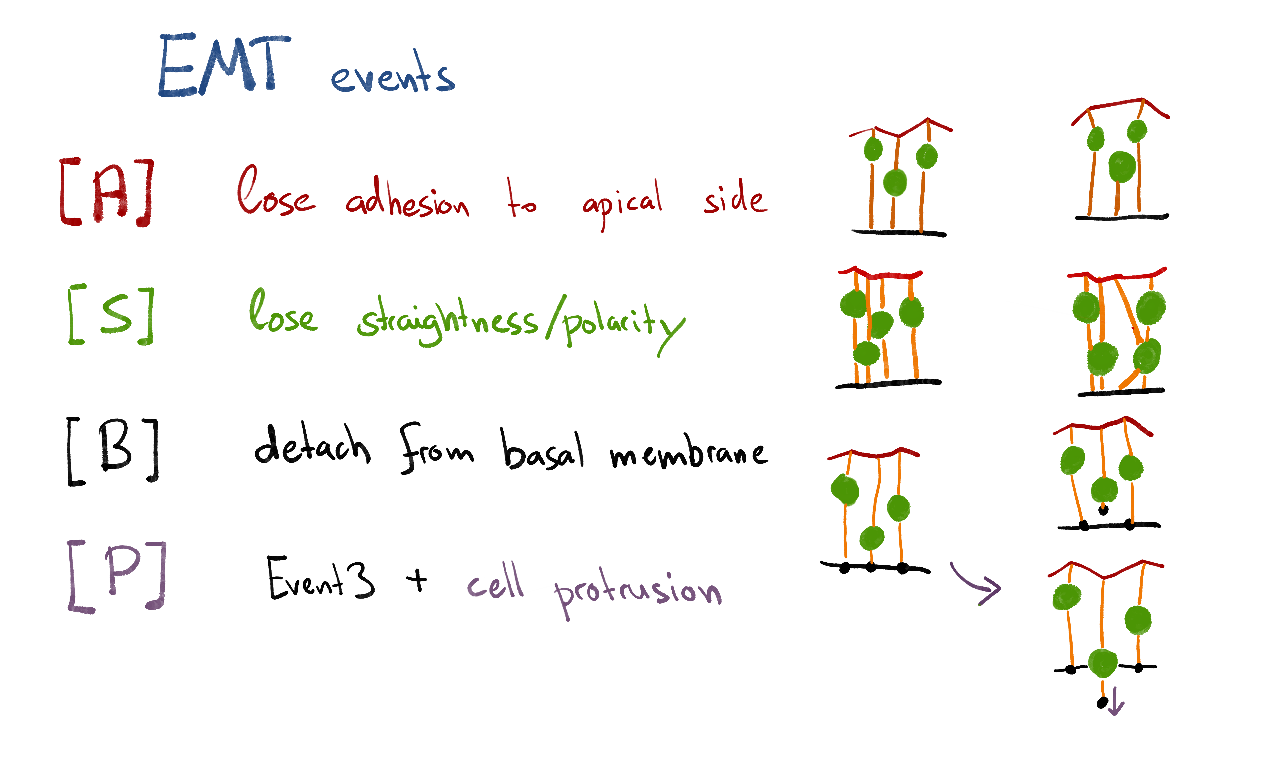 EMT events
[A] lose adhesion to apical side
[S] lose straightness/polarity
[B] detach from basal membrane
[P] Event3 + cell protrusion